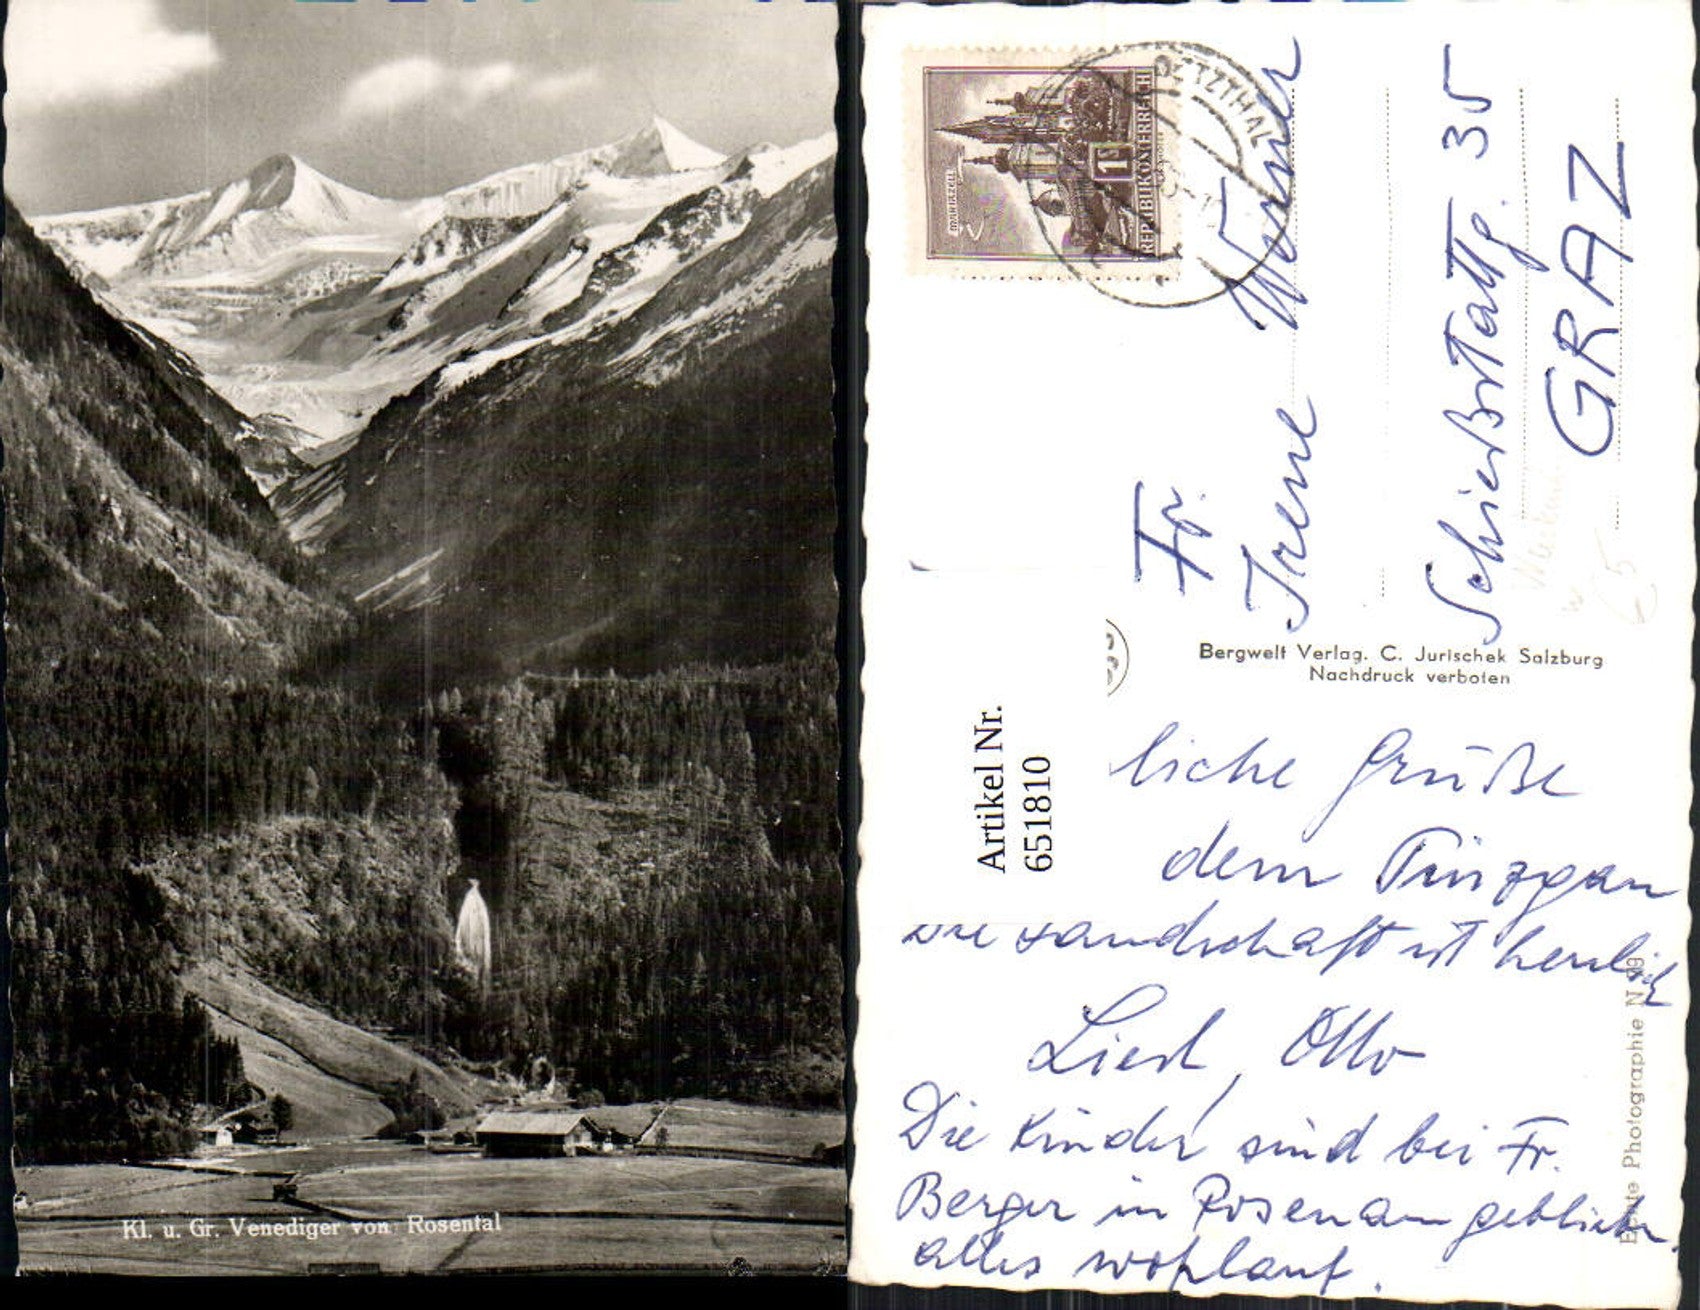 Kl. u. Gr. Venediger von Rosental
OETZTHAL
MARIAZELL
1S
REPUBLIK ÖSTERREICH
Fr.
Irene Werner
Schießstattg. 35
GRAZ
Bergwelt Verlag. C. Jurischek Salzburg
Nachdruck verboten
Artikel Nr.
651810
liche Grüße
dem Pinzgau
Die Landschaft ist herrlich
Liesl, Otto
Die Kinder sind bei Fr.
Berger in Rosenau geblieben.
alles wohlauf.
Echte Photographie